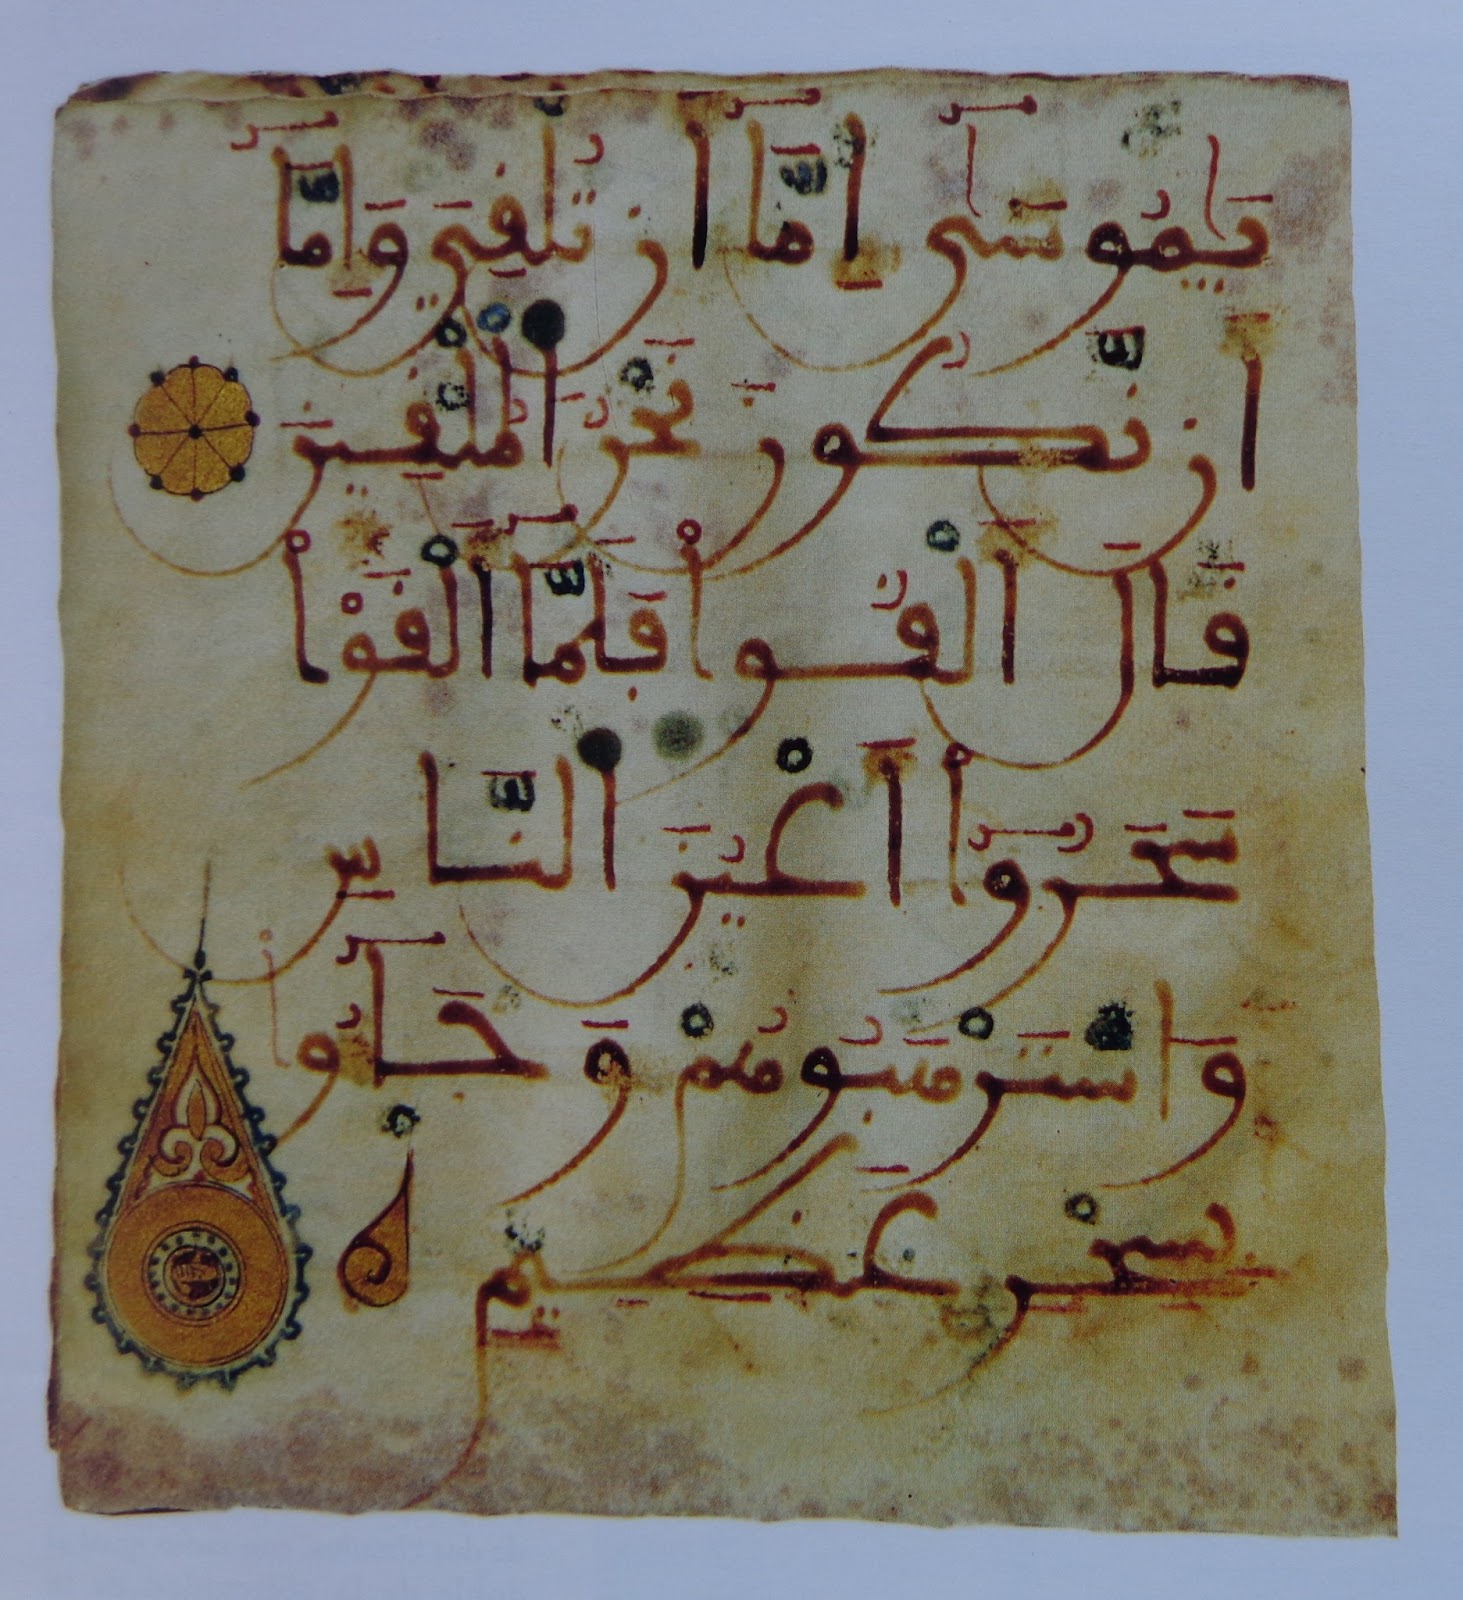 يَٰمُوسَىٰٓ إِمَّآ أَن تُلْقِيَ وَإِمَّآ
أَن نَّكُونَ نَحْنُ الْمُلْقِينَ
قَالَ أَلْقُوا فَلَمَّآ أَلْقَوْا
سَحَرُوٓا أَعْيُنَ النَّاسِ
وَاسْتَرْهَبُوهُمْ وَجَآءُوا
بِسِحْرٍ عَظِيمٍ